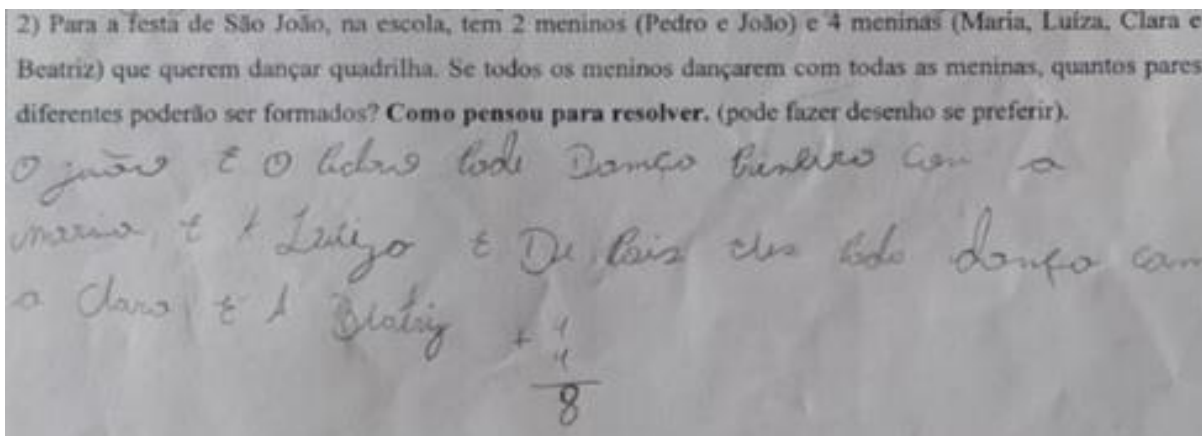 2) Para a festa de São João, na escola, tem 2 meninos (Pedro e João) e 4 meninas (Maria, Luíza, Clara e
Beatriz) que querem dançar quadrilha. Se todos os meninos dançarem com todas as meninas, quantos pares
diferentes poderão ser formados? Como pensou para resolver. (pode fazer desenho se preferir).
O joão E O Pedro Danço com a
maria, E A Luizo E De Pois eles danço com
a Claro, E A Beatriz + 4
4
8